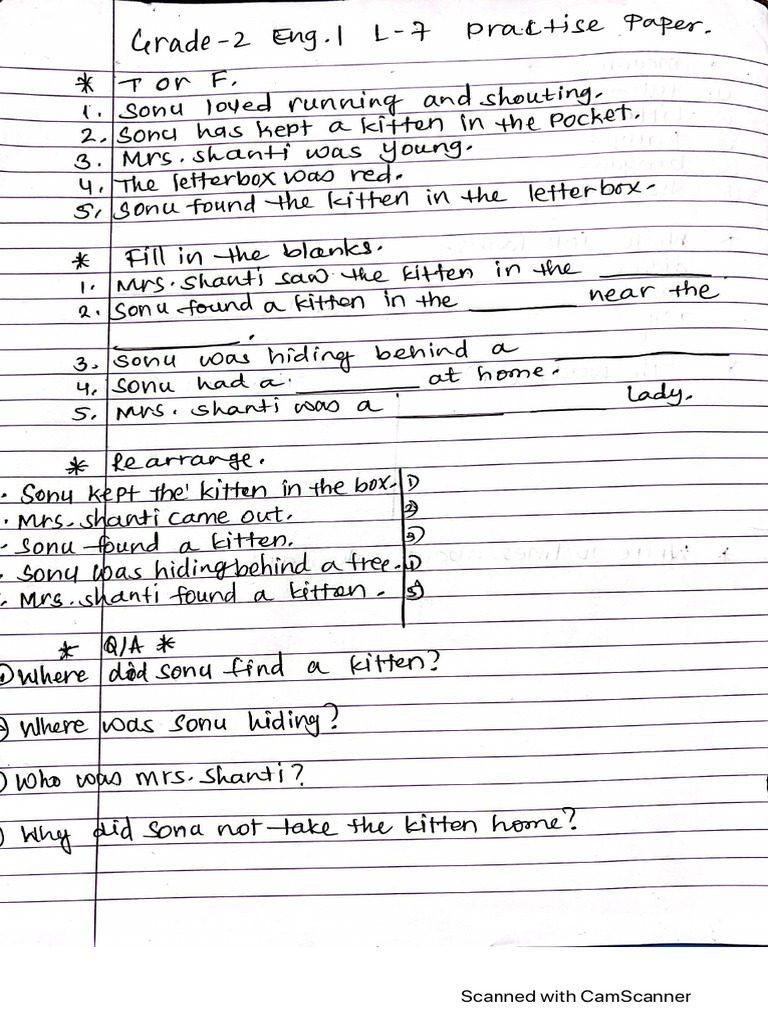 Grade-2 Eng.1 L-7 Practise Paper.
* T or F.
1. Sonu loved running and shouting.
2. Sonu has kept a kitten in the pocket.
3. Mrs. Shanti was young.
4. The letterbox was red.
5. Sonu found the kitten in the letterbox.
* Fill in the blanks.
1. Mrs. Shanti saw the kitten in the ________.
2. Sonu found a kitten in the ________ near the
________.
3. Sonu was hiding behind a ________
4. Sonu had a ________ at home.
5. Mrs. Shanti was a ________ ________ lady.
* Rearrange.
. Sonu kept the kitten in the box. 1)
. Mrs. Shanti came out. 2)
. Sonu found a kitten. 3)
. Sonu was hiding behind a tree. 1)
. Mrs. Shanti found a kitten. 5)
* Q/A *
1) Where did sonu find a kitten?
) Where was sonu hiding?
) Who was mrs. shanti?
) Why did sona not take the kitten home?
Scanned with CamScanner